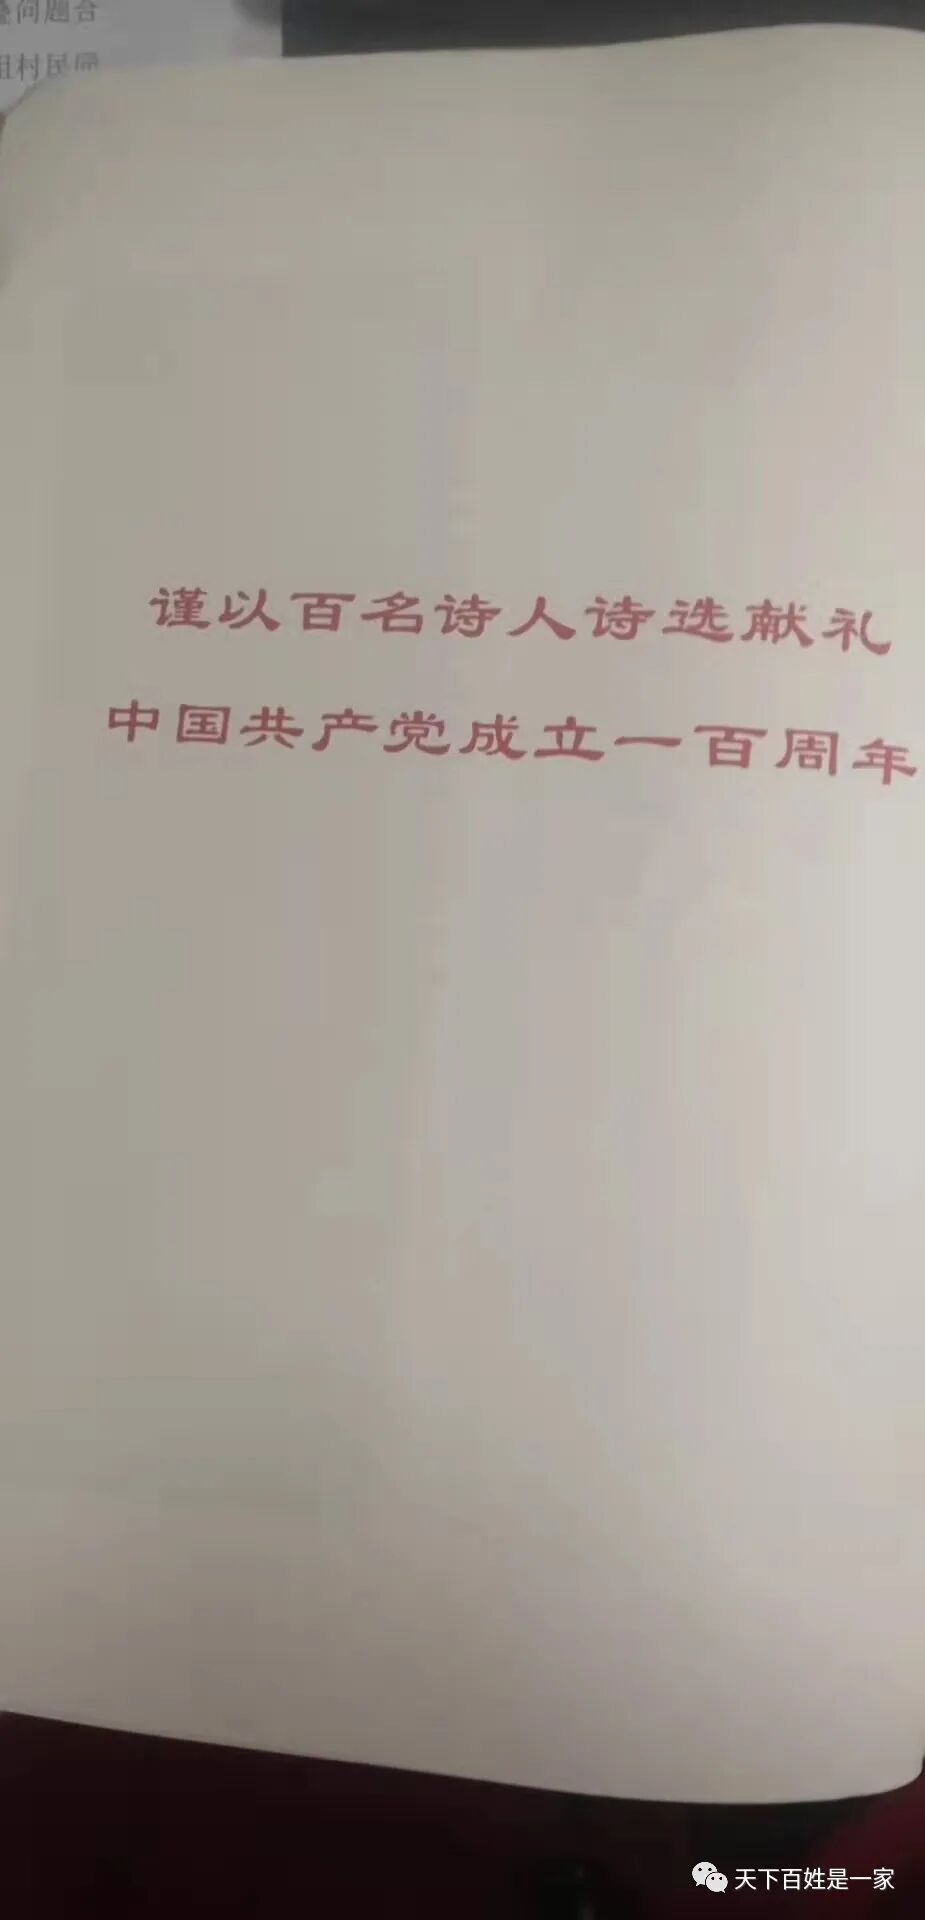 问题合
村民
谨以百名诗人诗选献礼
中国共产党成立一百周年
天下百姓是一家